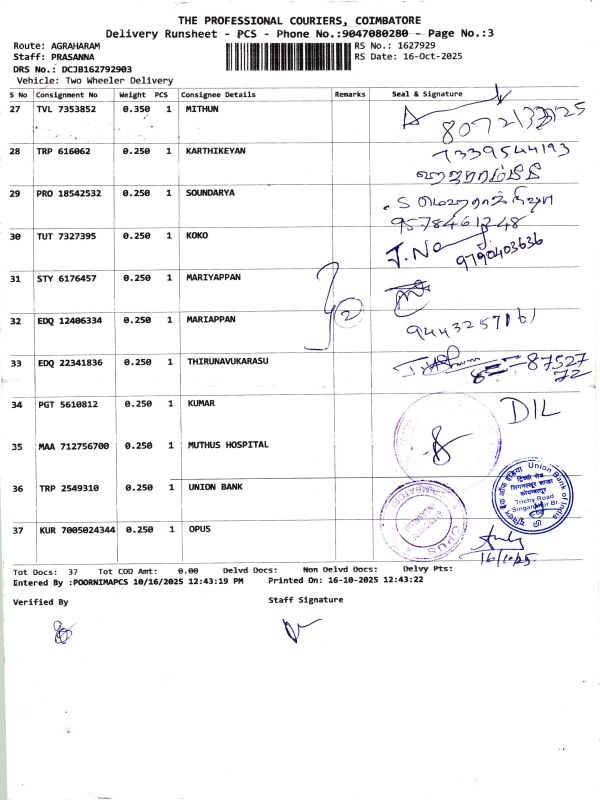 THE PROFESSIONAL COURIERS, COIMBATORE
Delivery Runsheet - PCS - Phone No.:9047080280 - Page No.:3
Route: AGRAHARAM
Staff: PRASANNA
DRS No.: DCJB162792903
Vehicle: Two Wheeler Delivery
RS No.: 1627929
RS Date: 16-Oct-2025
S No Consignment No Weight PCS Consignee Details Remarks Seal & Signature
27 TVL 7353852 0.350 1 MITHUN
28 TRP 616062 0.250 1 KARTHIKEYAN 7339544193
29 PRO 18542532 0.250 1 SOUNDARYA
30 TUT 7327395 0.250 1 KOKO 9790403636
31 STY 6176457 0.250 1 MARIYAPPAN
32 EDQ 12406334 0.250 1 MARIAPPAN 2 9443257161
33 EDQ 22341836 0.250 1 THIRUNAVUKARASU
34 PGT 5610812 0.250 1 KUMAR DIL
35 MAA 712756700 0.250 1 MUTHUS HOSPITAL
36 TRP 2549310 0.250 1 UNION BANK Union Bank of India Trichy Road
37 KUR 7005024344 0.250 1 OPUS OPUS
16/10/25
Tot Docs: 37 Tot COD Amt: 0.00 Delvd Docs: Non Delvd Docs: Delvy Pts:
Entered By :POORNIMAPCS 10/16/2025 12:43:19 PM Printed On: 16-10-2025 12:43:22
Verified By Staff Signature